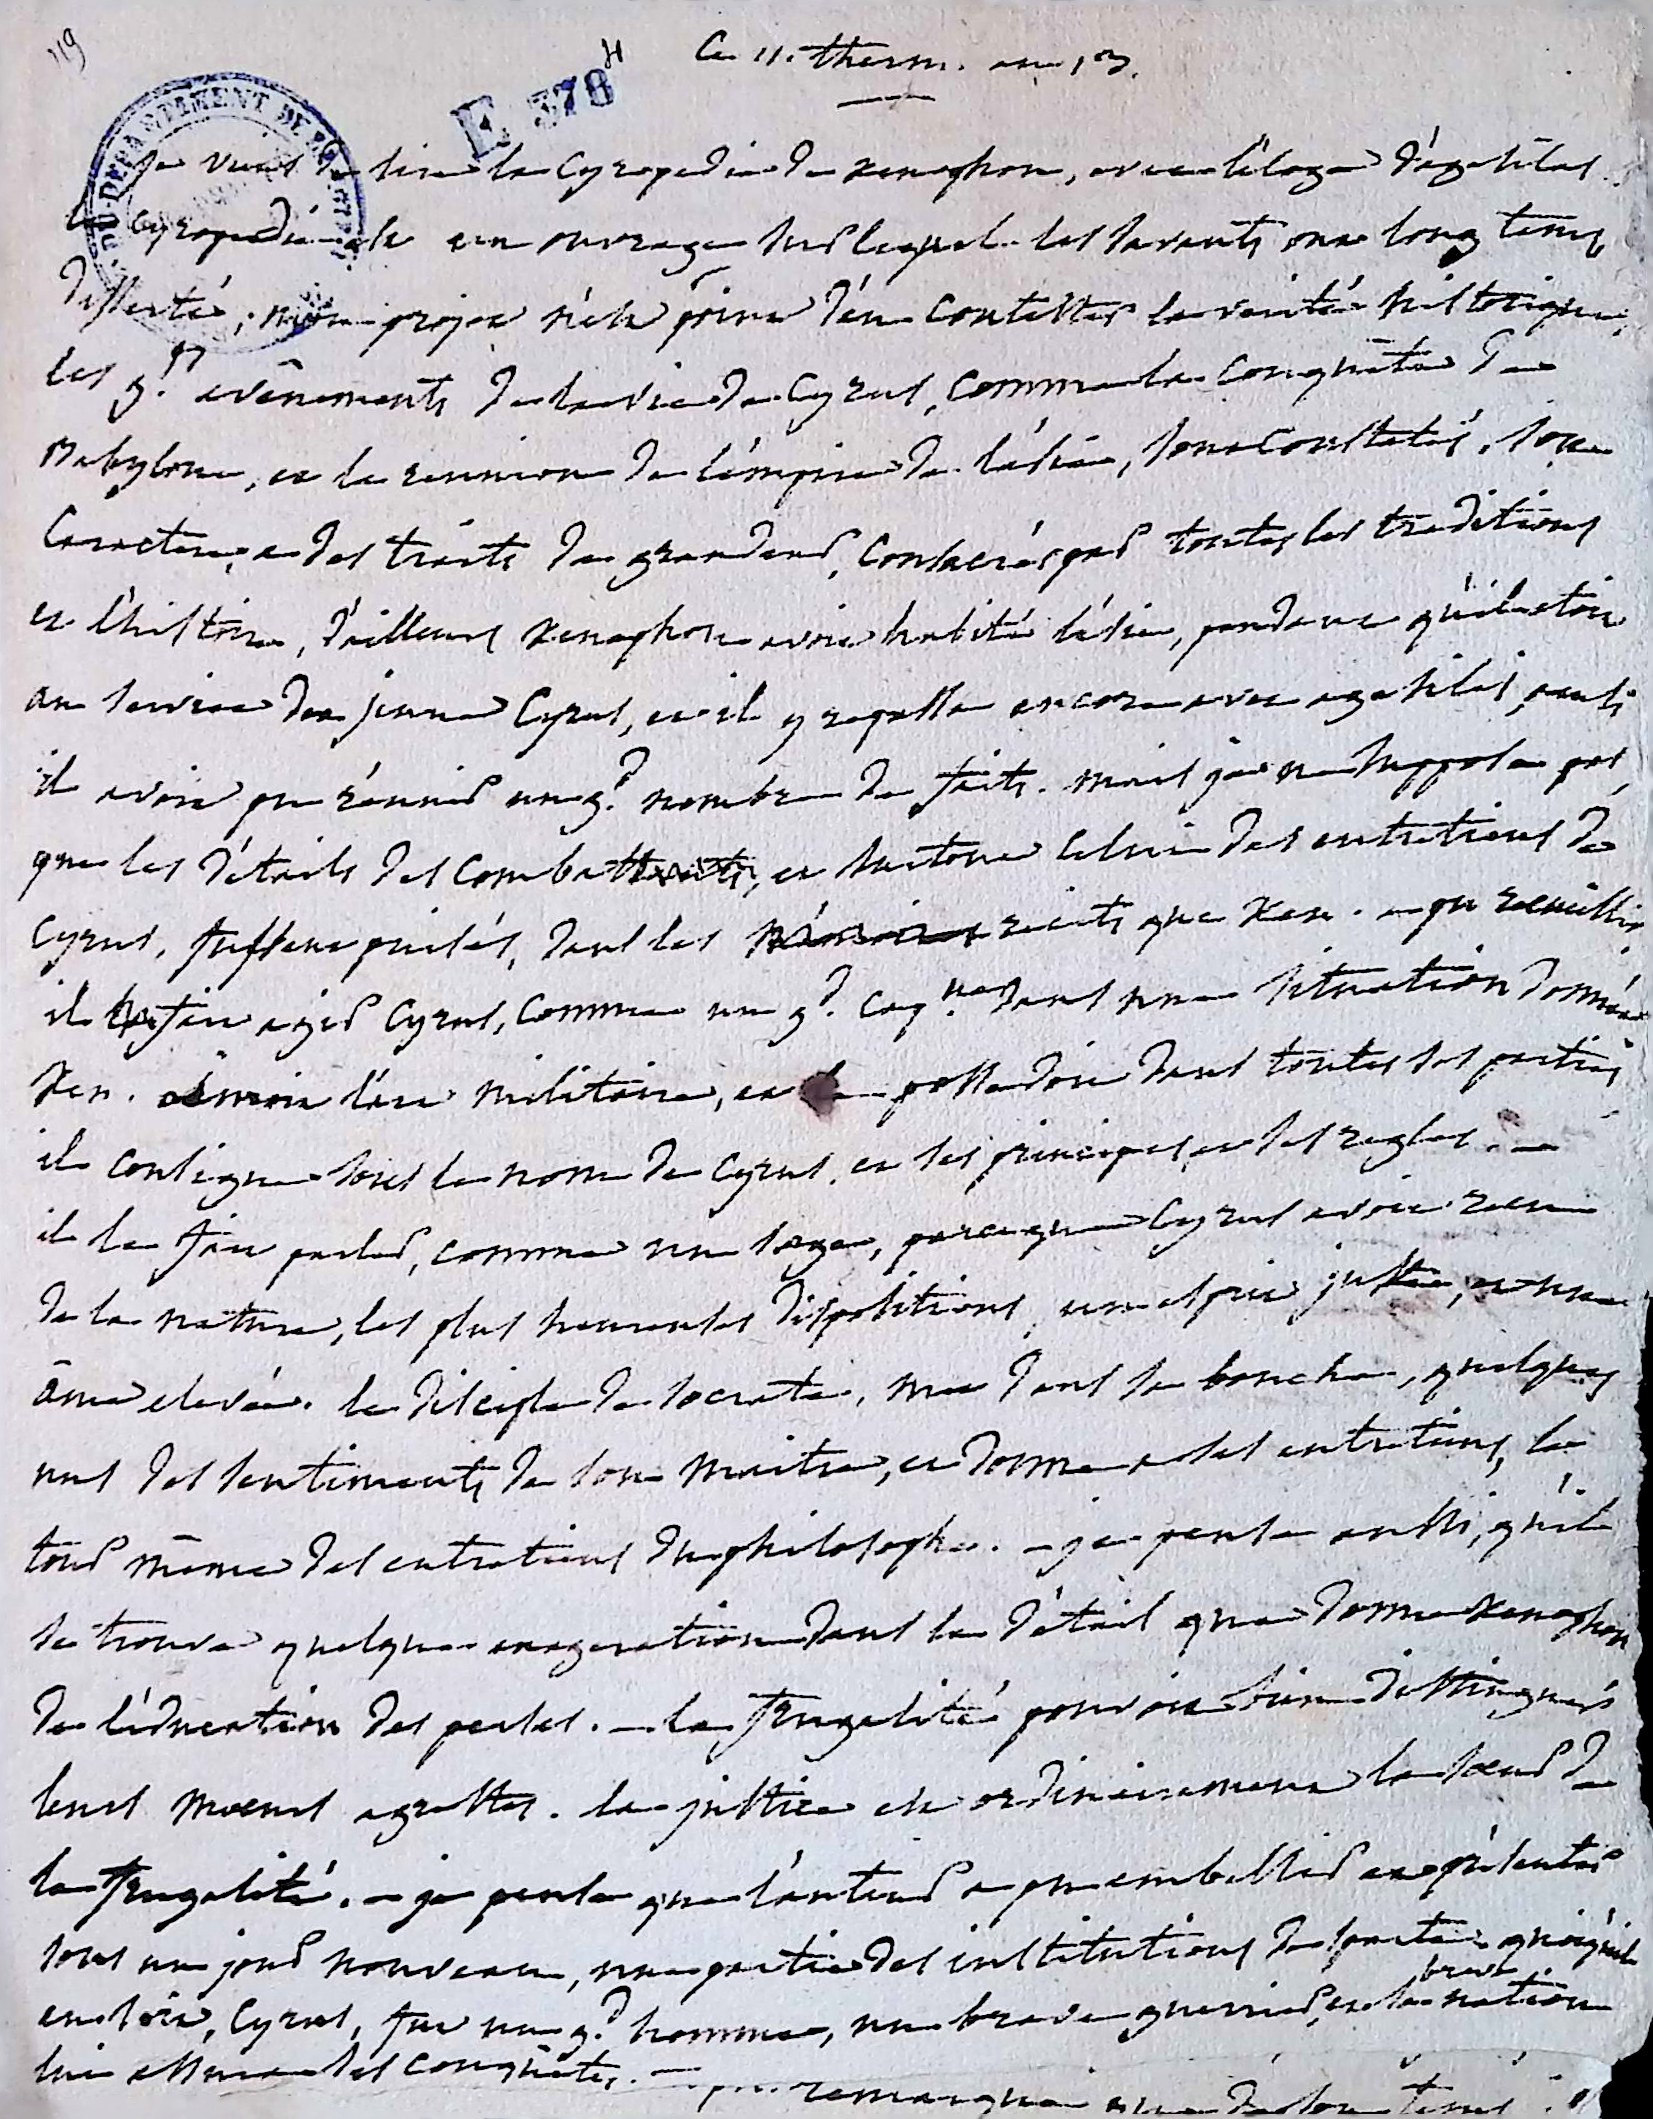 119
E 378 H
Ce 11. therm. an 13.
DU DEPARTEMENT DE
je viens de lire la Cyropedie de xenophon, avec l'éloge d'agesilas
la cyropedie est un ouvrage sur lequel les savants ont long tems
disserté ; mon projet n'est point d'en contester la verité historique,
les gds evênements de la vie de Cyrus, comme la conquête de
Babylone, et la reunion de l'empire de l'asie, sont constatés. son
caractere, a des traits de grandeur, consacrés par toutes les traditions
et l'histoire, d'ailleurs xenophon avoit habité l'asie, pendant qu'il etoit
au service du jeune Cyrus, et il y repassa encore avec agesilas, aussi
il avoit pu réunir un gd nombre de faits. mais je ne suppose pas,
que les détails des combats, et surtout celui des entretiens de
Cyrus, fussent puisés, dans les recits que Xen. a pu recueillir,
il fait agir Cyrus, comme un gd capne dans une situation donnée
Xen. aimoit l'art militaire, et le possedoit dans toutes ses parties
il consigne sous le nom de Cyrus, et ses principes, et ses regles. —
il le fait parler, comme un sage, parce que Cyrus avoit recu
de la nature, les plus heureuses dispositions, un esprit juste, et une
âme elevée. le disciple de socrate, met dans sa bouche, quelques
uns des sentiments de son maitre, et donne a ses entretiens, le
tour même des entretiens du philosophe. — je pense aussi, qu'il
se trouve quelque exageration dans le détail que donne xenophon
de l'éducation des perses. — la frugalité pouvoit bien distinguer
leurs moeurs agrestes. la justice est ordinairement la soeur de
la frugalité. — je pense que l'auteur a pu embellir et présenter
sous un jour nouveau, une partie des institutions de sparte. quoiqu'il
en soit, Cyrus, fut un gd homme, un brave guerrier, et sa brave nation
lui assura des conquêtes. —
remarqué que dès son tems